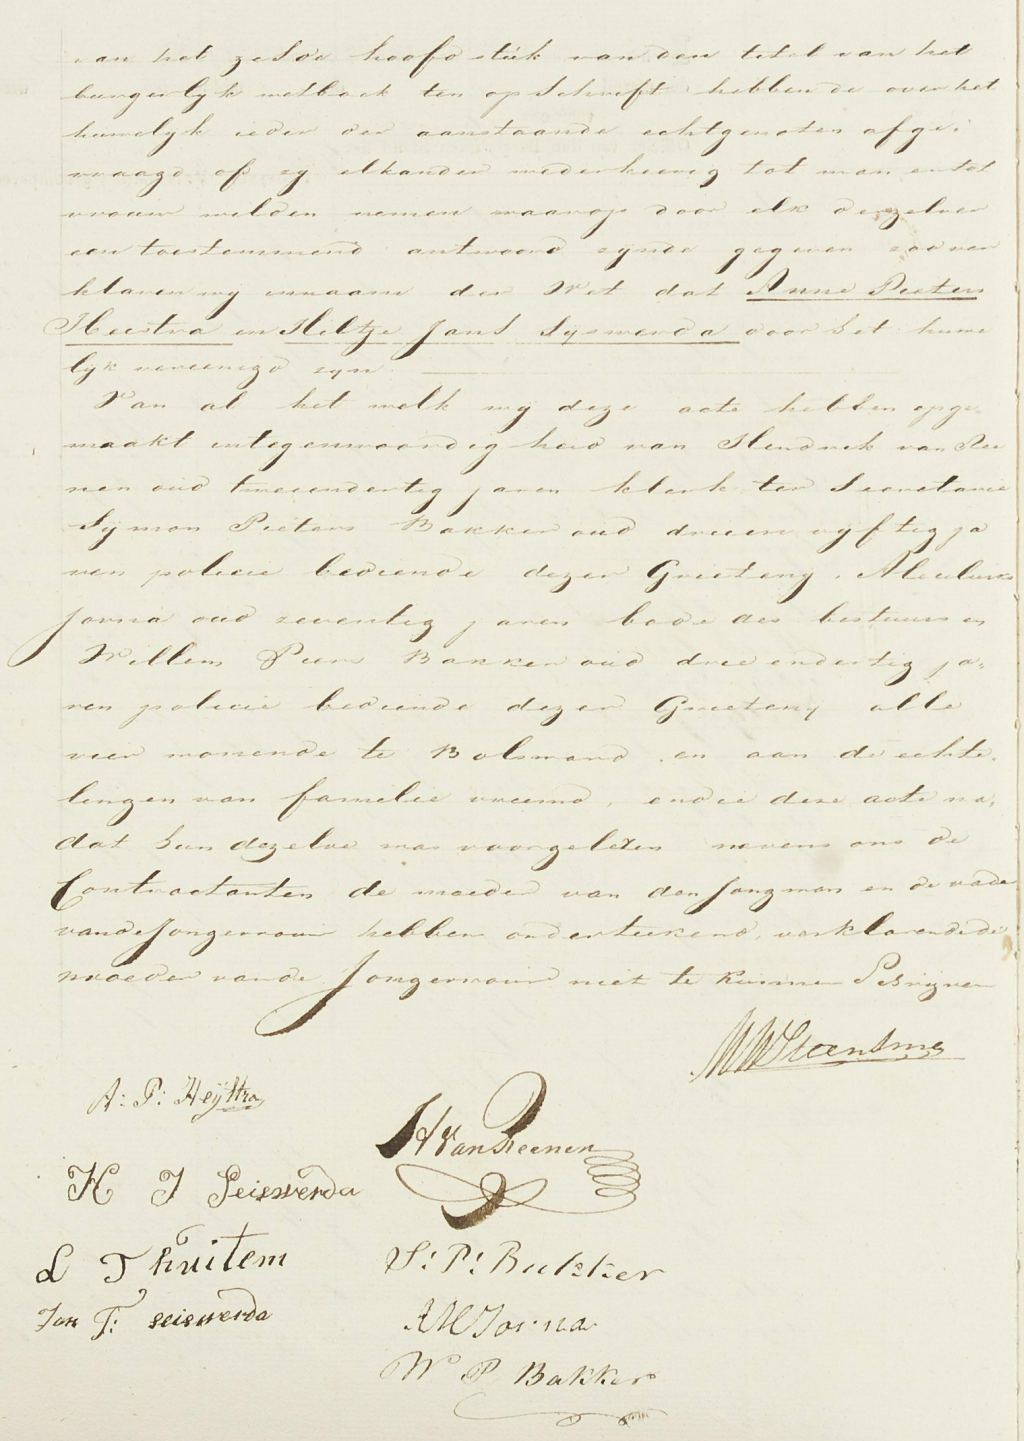 van het zesde hoofdstuk van den titel van het
burgerlyk wetboek ten opschrift hebbende over het
huwelyk ieder der aanstaande echtgenoten afge-
vraagd of zy elkander wederkeerig tot man en tot
vrouw wilden nemen waarop door elk derzelver
een toestemmend antwoord zynde gegeven zoo ver
klaren wy in naam der Wet dat Anne Pieters
Heestra en Hiltje Jans Sijswerda door het huwe
lyk vereenigd zyn
Van al het welk wy deze acte hebben opge-
maakt in tegenwoordigheid van Hendrik van Ree
nen oud tweeendertig jaren klerk ter Secretarie
Symon Pieters Bakker oud drieenvyftig ja
ren policie bediende dezer Grieteny,
Jorna oud zeventig jaren bode des bestuurs en
Willem Piers Bakker oud drieendertig ja-
ren policie bediende dezer Grieteny alle
vier wonende te Bolsward en aan de echte-
lingen van familie vreemd, en die deze acte na-
dat hun dezelve was voorgelezen nevens ons de
Contractanten de moeder van den Jongman en de vader
van de Jongevrouw hebben onderteekend, verklarende de
moeder van de Jongevrouw niet te kunnen Schryven
A: P: Heijstra
H van Reenen
H J Seieswerda
L T huitem
S: P: Bakker
Jan F: seieswerda
A M Jorna
W P Bakker